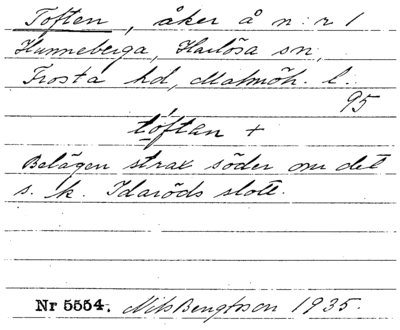 Toften, åker å n:r 1
Hunneberga, Harlösa sn,
Frosta hd, Malmöh. l.
95
tóftan +
Belägen strax söder om det
s. k. Idaröds slott.
Nr 5554. Nils Bengtsson 1935.